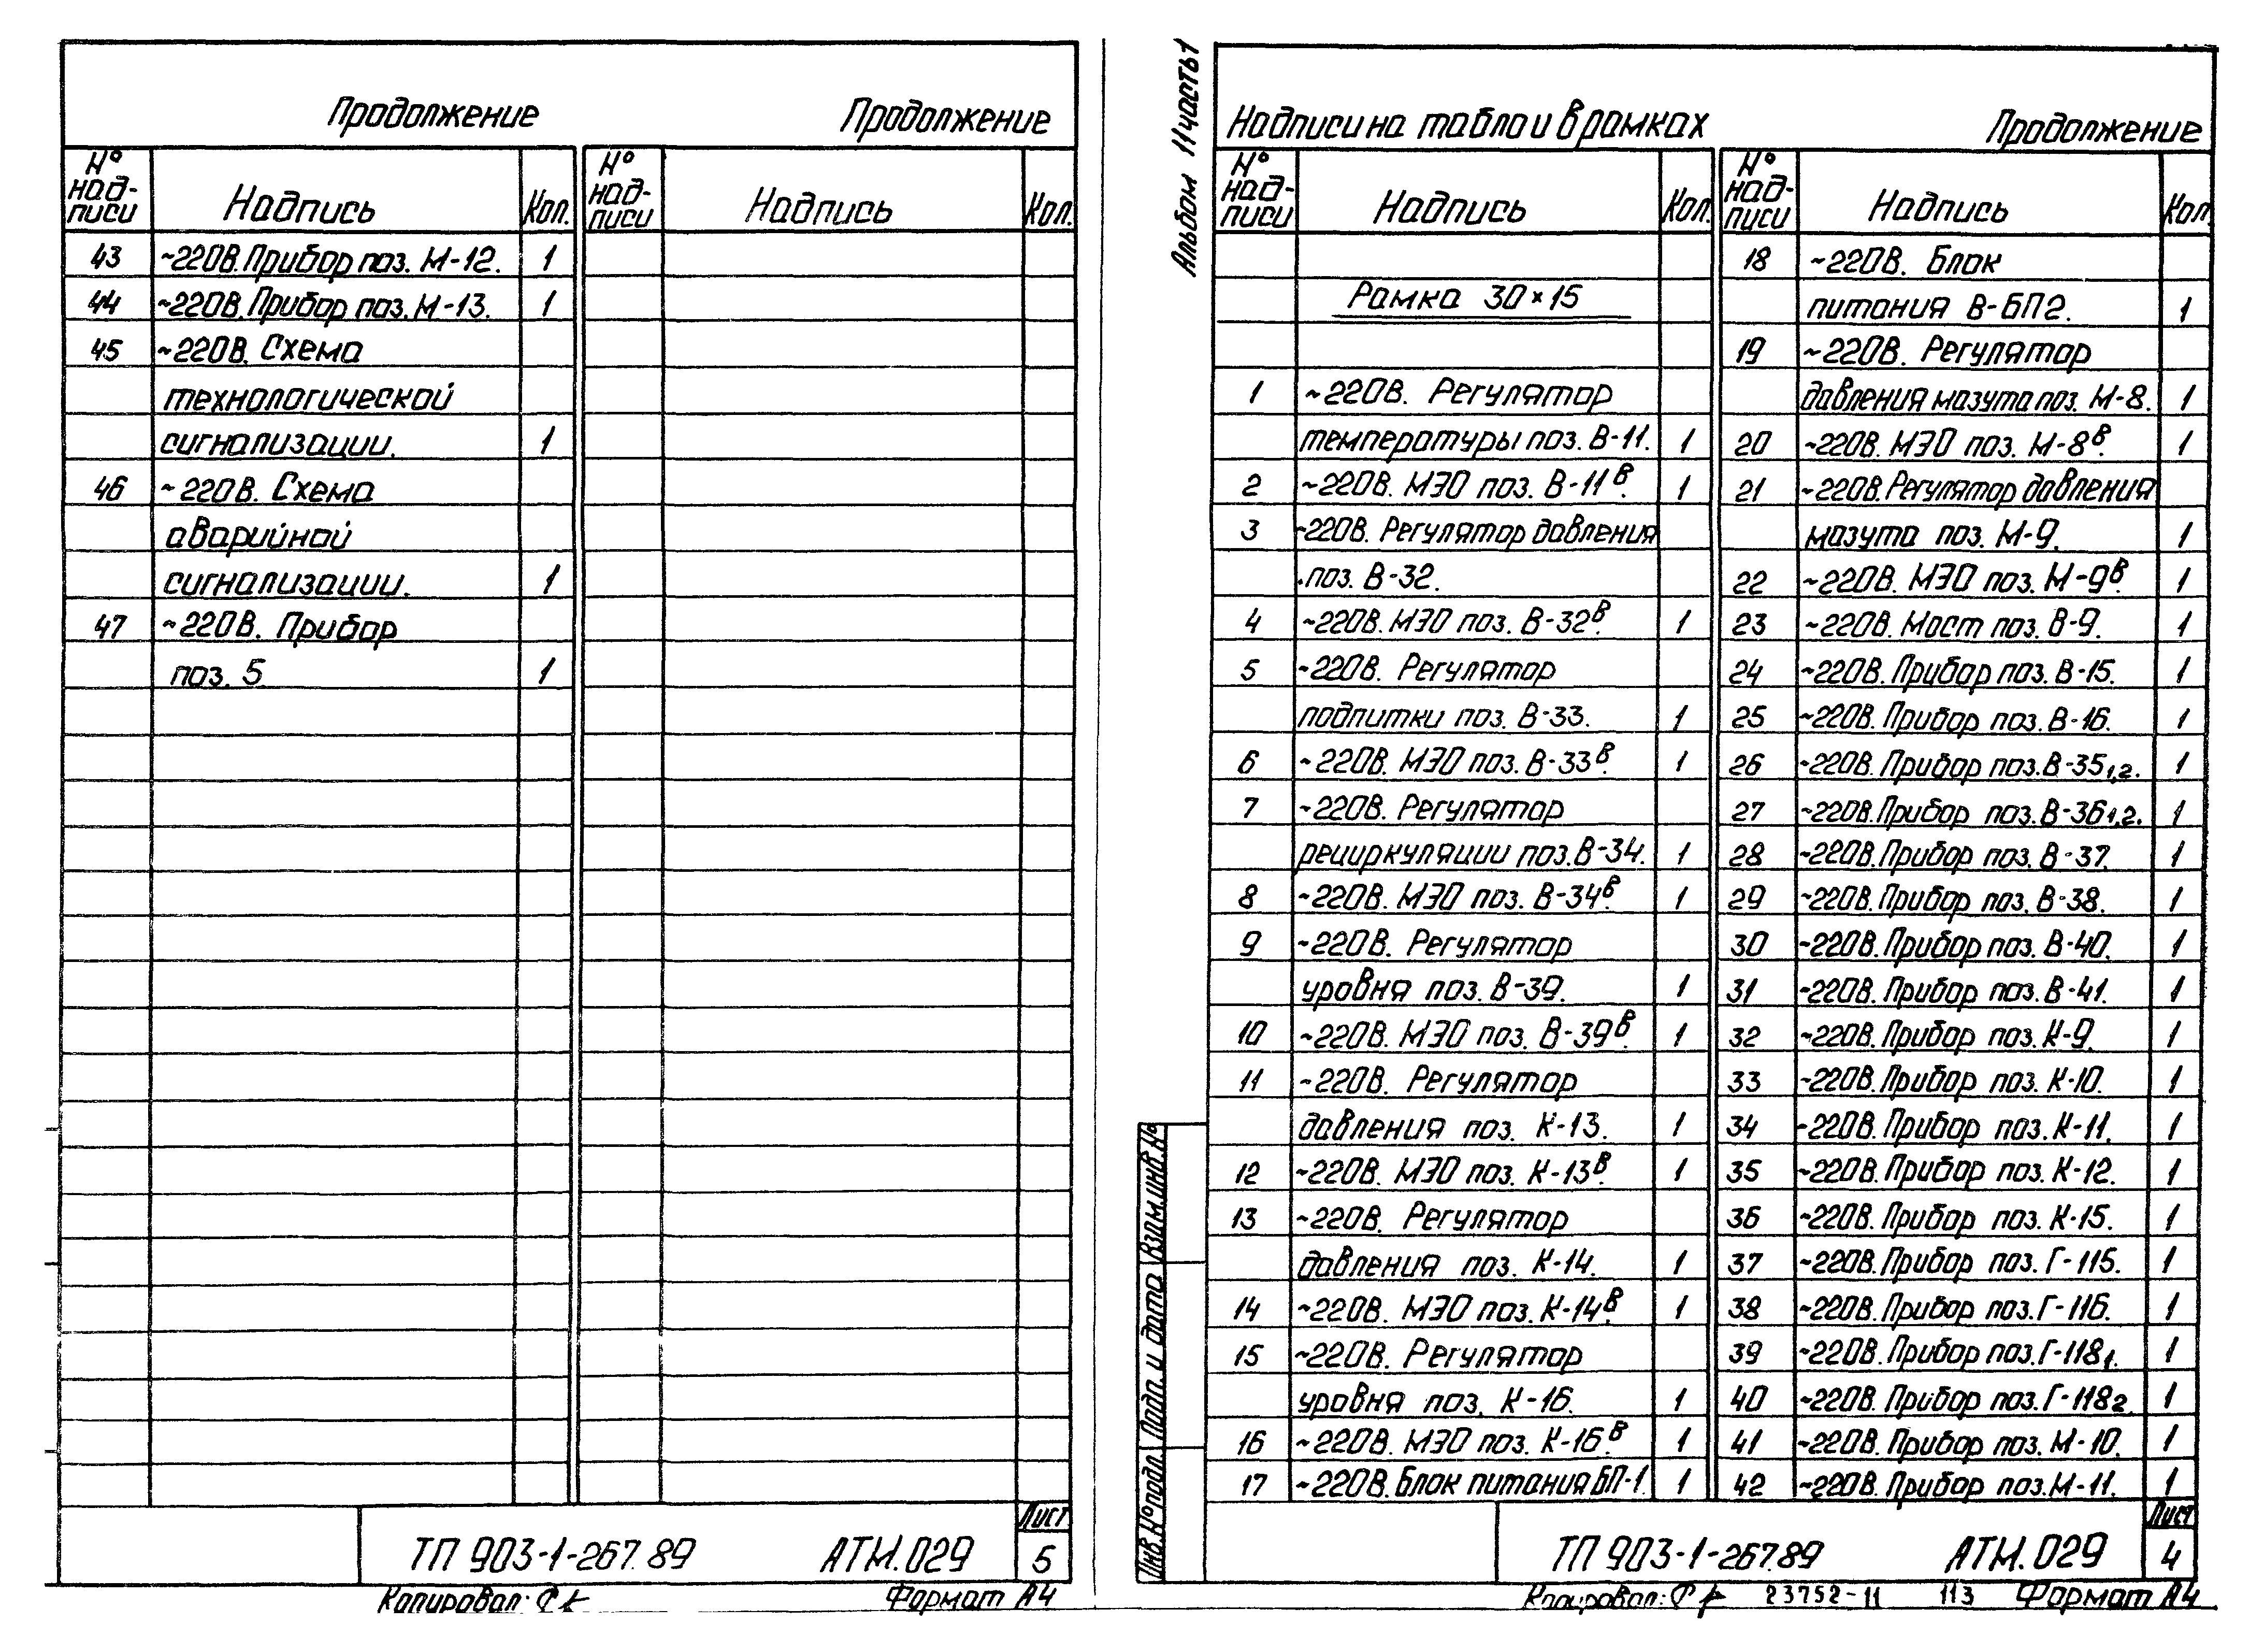 Продолжение Продолжение
№ надписи Надпись Кол. № надписи Надпись Кол.
43 ~220В. Прибор поз. М-12. 1
44 ~220В. Прибор поз. М-13. 1
45 ~220В. Схема
технологической
сигнализации. 1
46 ~220В. Схема
аварийной
сигнализации. 1
47 ~220В. Прибор
поз. 5 1
ТП 903-1-267.89 АТМ.029 Лист 5
Копировал: Формат А4
Альбом 11 часть 1
Надписи на табло и в рамках Продолжение
№ надписи Надпись Кол.
Рамка 30×15
1 ~220В. Регулятор
температуры поз. В-11. 1
2 ~220В. МЭО поз. В-11в. 1
3 ~220В. Регулятор давления
поз. В-32.
4 ~220В. МЭО поз. В-32в. 1
5 ~220В. Регулятор
подпитки поз. В-33. 1
6 ~220В. МЭО поз. В-33в. 1
7 ~220В. Регулятор
рециркуляции поз. В-34. 1
8 ~220В. МЭО поз. В-34в. 1
9 ~220В. Регулятор
уровня поз. В-39. 1
10 ~220В. МЭО поз. В-39в. 1
11 ~220В. Регулятор
давления поз. К-13. 1
12 ~220В. МЭО поз. К-13в. 1
13 ~220В. Регулятор
давления поз. К-14. 1
14 ~220В. МЭО поз. К-14в. 1
15 ~220В. Регулятор
уровня поз. К-16. 1
16 ~220В. МЭО поз. К-16в. 1
17 ~220В. Блок питания БП-1. 1
№ надписи Надпись Кол.
18 ~220В. Блок
питания В-БП2. 1
19 ~220В. Регулятор
давления мазута поз. М-8. 1
20 ~220В. МЭО поз. М-8в. 1
21 ~220В. Регулятор давления
мазута поз. М-9. 1
22 ~220В. МЭО поз. М-9в. 1
23 ~220В. Мост поз. В-9. 1
24 ~220В. Прибор поз. В-15. 1
25 ~220В. Прибор поз. В-16. 1
26 ~220В. Прибор поз. В-35₁,₂. 1
27 ~220В. Прибор поз. В-36₁,₂. 1
28 ~220В. Прибор поз. В-37. 1
29 ~220В. Прибор поз. В-38. 1
30 ~220В. Прибор поз. В-40. 1
31 ~220В. Прибор поз. В-41. 1
32 ~220В. Прибор поз. К-9. 1
33 ~220В. Прибор поз. К-10. 1
34 ~220В. Прибор поз. К-11. 1
35 ~220В. Прибор поз. К-12. 1
36 ~220В. Прибор поз. К-15. 1
37 ~220В. Прибор поз. Г-115. 1
38 ~220В. Прибор поз. Г-116. 1
39 ~220В. Прибор поз. Г-118₁. 1
40 ~220В. Прибор поз. Г-118₂. 1
41 ~220В. Прибор поз. М-10. 1
42 ~220В. Прибор поз. М-11. 1
Инв. № подл. Подп. и дата Взам. инв. №
ТП 903-1-267.89 АТМ.029 Лист 4
Копировал: 23752-11 113 Формат А4